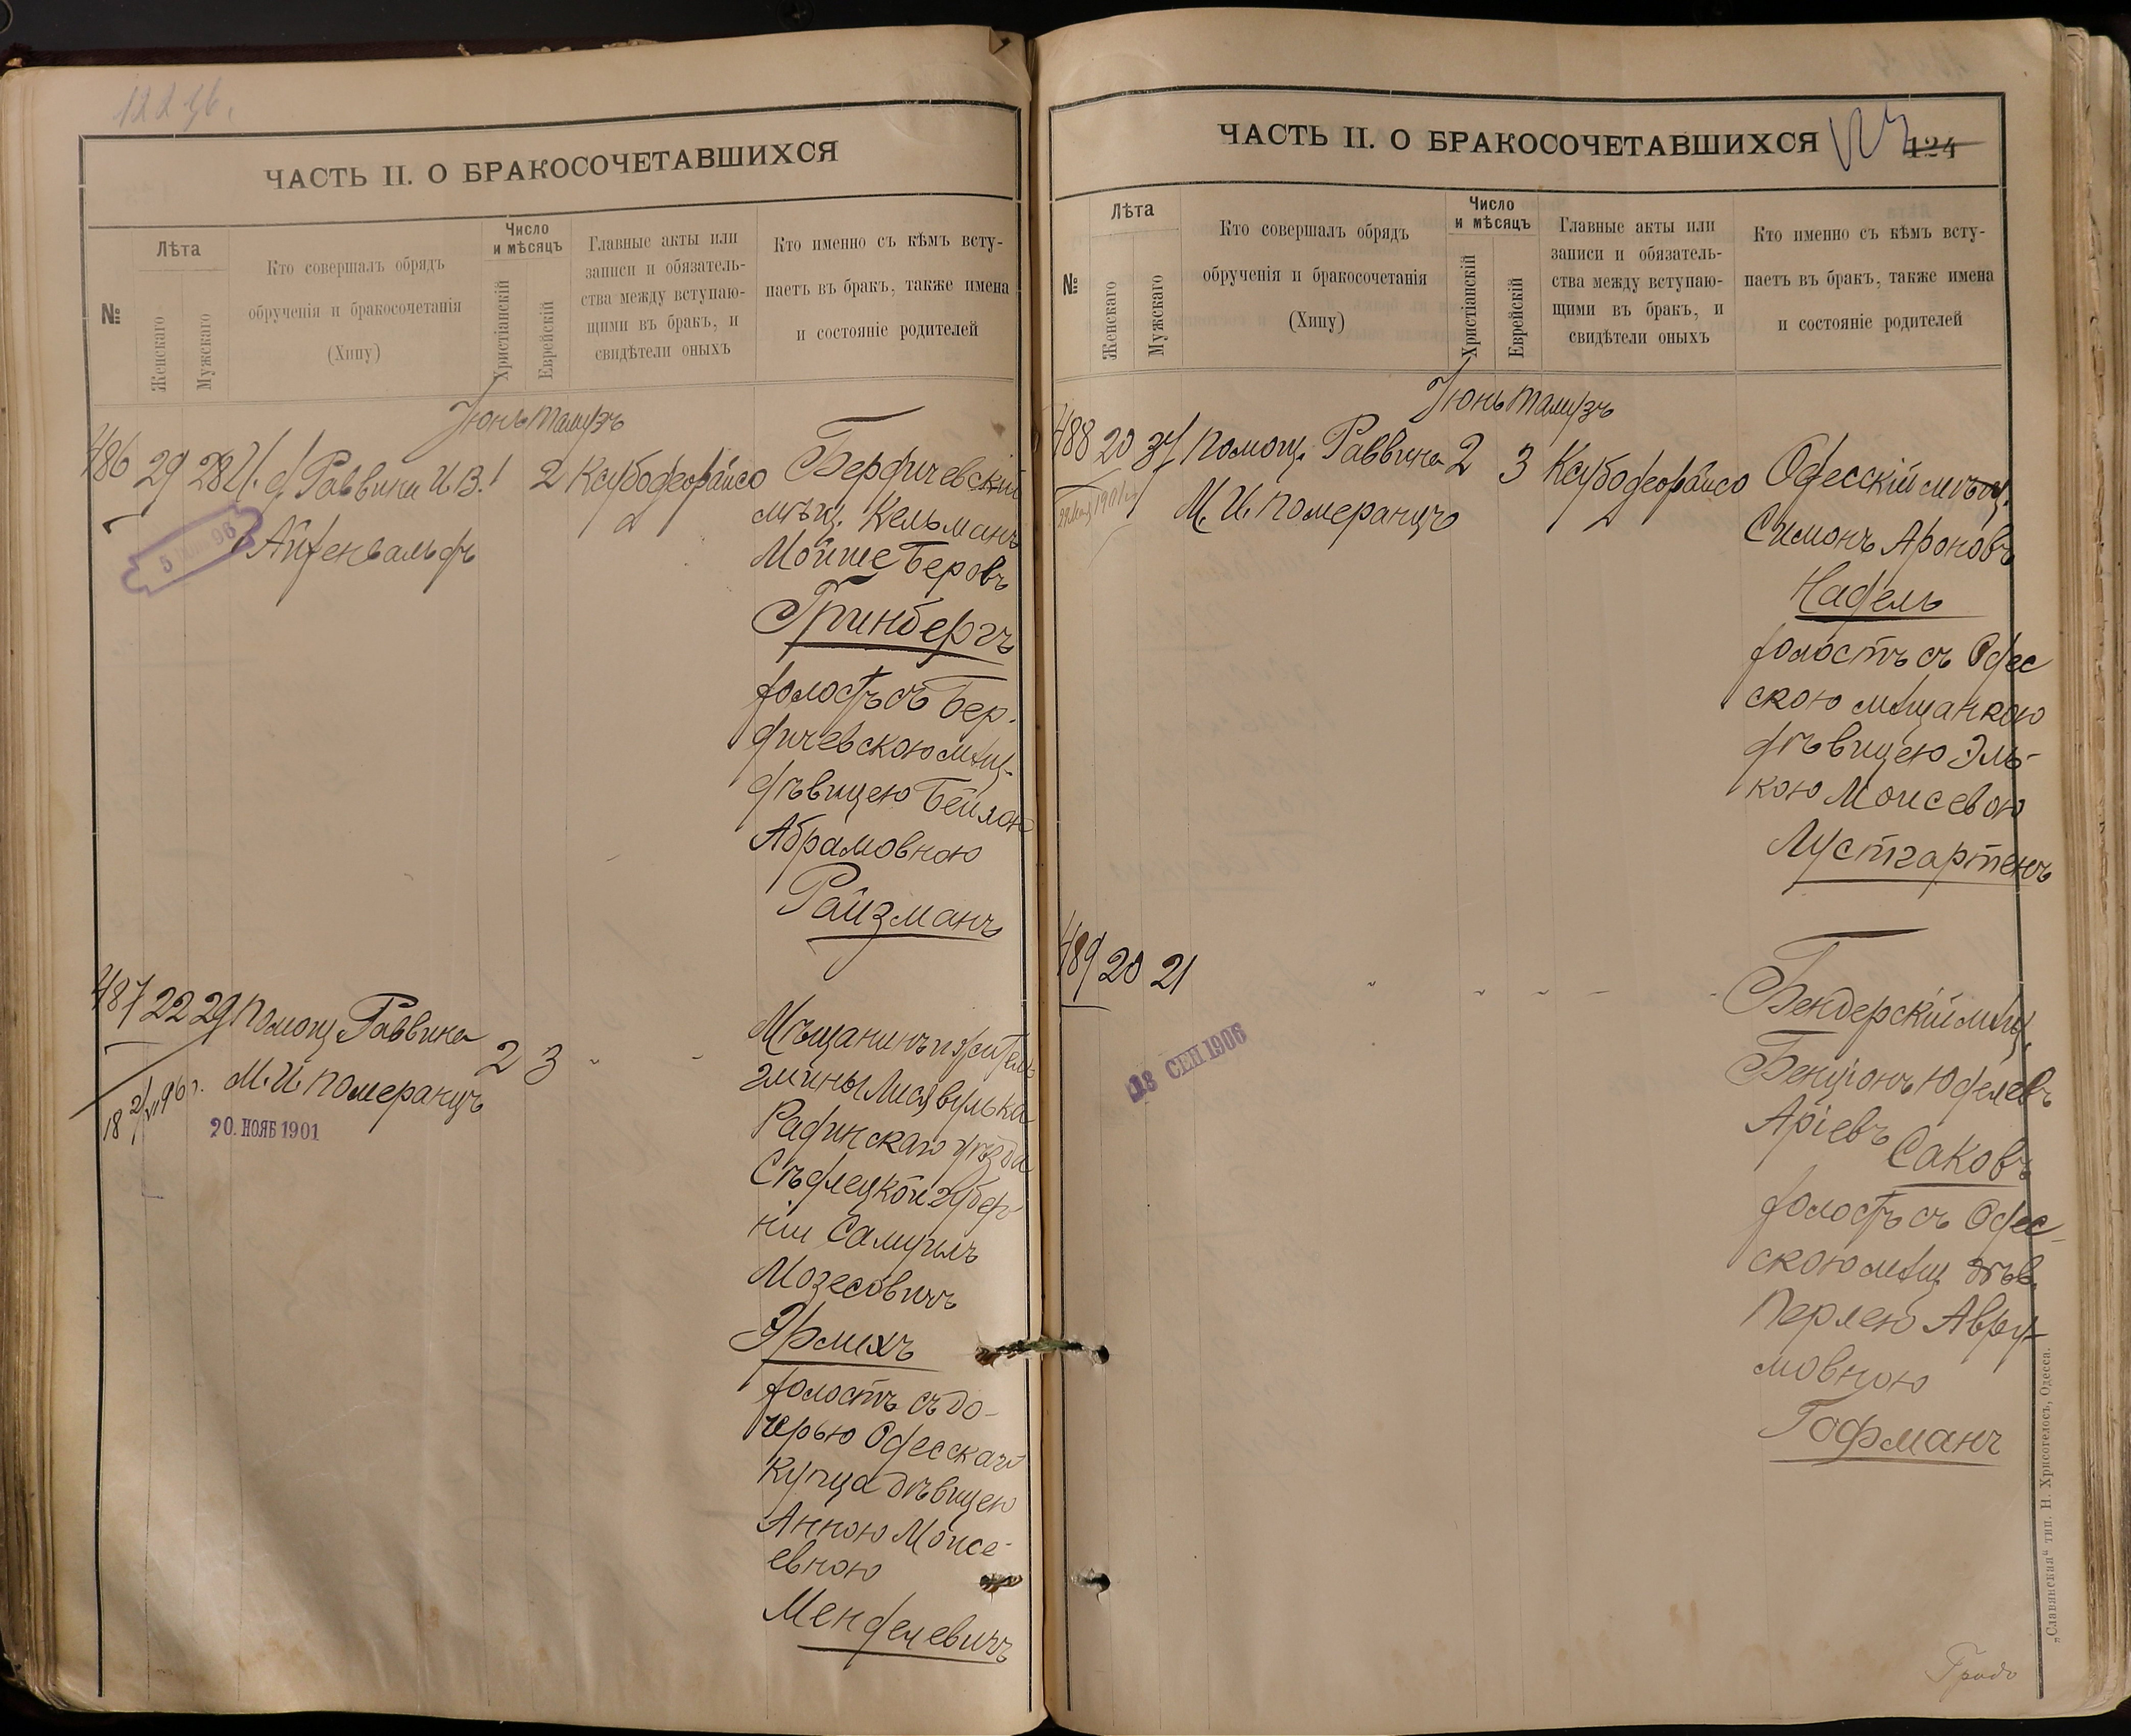 ЧАСТЬ II. О БРАКОСОЧЕТАВШИХСЯ
№
Лѣта
Женскаго
Мужскаго
Кто совершалъ обрядъ
обрученія и бракосочетанія
(Хипу)
Число
и мѣсяцъ
Христіанскій
Еврейскій
Главные акты или
записи и обязатель-
ства между вступаю-
щими въ бракъ, и
свидѣтели оныхъ
Кто именно съ кѣмъ всту-
паетъ въ бракъ, также имена
и состояніе родителей
Іюнь Тамузъ
486 29 28 И. д. Раввина И. В.
Айзенвальдъ
2
Бердичевскій
мѣщ. Кельманъ
Мойше Беровъ
Гринбергъ
холостъ съ Бер-
дичевскою мѣщ.
дѣвицею Бейлою
Абрамовною
Райзманъ
487 22 29 Помощ Раввина 2 3
М. И. Померанцъ
20. НОЯБ 1901
Мѣщанинъ и житель
гмины Лисявулька
Радинскаго уѣзда
Сѣдлецкой губер
ніи Самуилъ
Мозесовичъ
Эрлихъ
холостъ съ до-
черью Одесскаго
купца дѣвицею
Анною Моисе-
евною
Менделевичъ
ЧАСТЬ II. О БРАКОСОЧЕТАВШИХСЯ
124
№
Лѣта
Женскаго
Мужскаго
Кто совершалъ обрядъ
обрученія и бракосочетанія
(Хипу)
Число
и мѣсяцъ
Христіанскій
Еврейскій
Главные акты или
записи и обязатель-
ства между вступаю-
щими въ бракъ, и
свидѣтели оныхъ
Кто именно съ кѣмъ всту-
паетъ въ бракъ, также имена
и состояніе родителей
Іюнь Тамузъ
488 20 37 Помощ. Раввина 2 3
М. И. Померанцъ
Одесскій мѣщ.
Симонъ Ароновъ
Надель
холостъ съ Одес
скою мѣщанкою
дѣвицею Эль-
кою Моисевою
Лустгартенъ
489 20 21
13 СЕН 1906
Бендерскій мѣщ.
Бенціонъ Юделевъ
Аріевъ Саковъ
холостъ съ Одес-
скою мѣщ дѣв.
Перлею Авру-
мовною
Гофманъ
„Славянская“ тип. Н. Хрисогелосъ, Одесса.